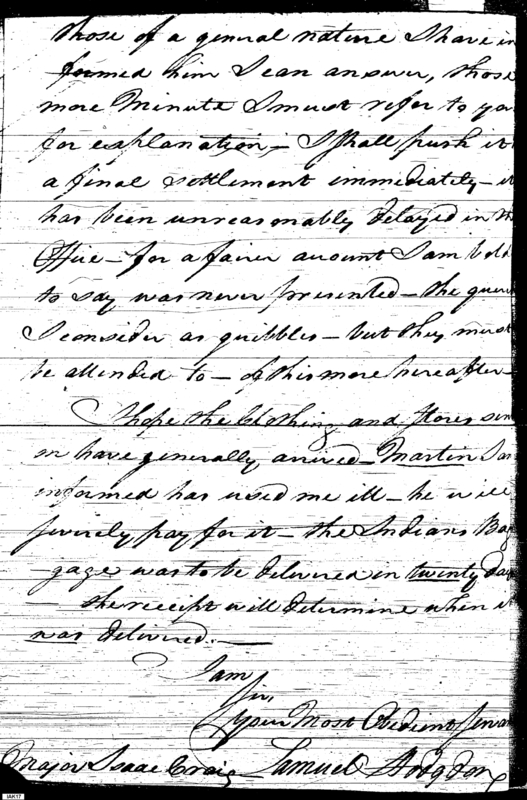 those of a general nature I have in
formed him I can answer, those
more Minute I must refer to yo
for explanation,— I shall push it
a final settlement immediately— it
has been unreasonably delayed in th
Office— for a fairer account I am bold
to say was never presented— the quer
I consider as quibbles— but they must
be attended to— of this more hereafter—
I hope the Clothing and stores sen
on have generally arrived— Martin I a
informed has used me ill— he will
severely pay for it— the Indians Bag
gage was to be delivered in twenty day
— the receipt will determine when it
was delivered.—
I am
Sir,
Your Most Obedient Servan
Major Isaac Craig Samuel Hodgdon
IAK17